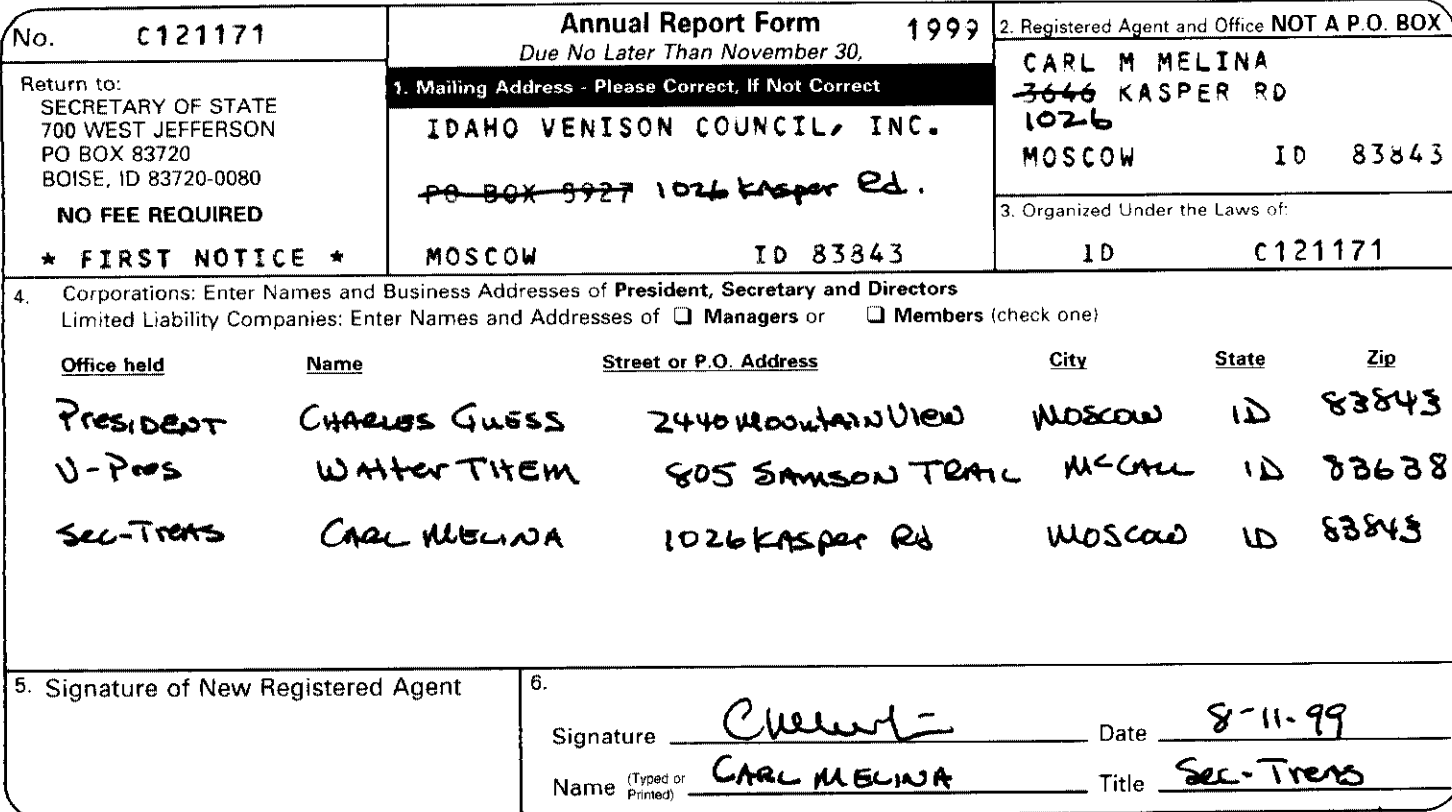 No. C121171
Return to:
SECRETARY OF STATE
700 WEST JEFFERSON
PO BOX 83720
BOISE, ID 83720-0080
NO FEE REQUIRED
* FIRST NOTICE *
Annual Report Form 1999
Due No Later Than November 30,
1. Mailing Address - Please Correct, If Not Correct
IDAHO VENISON COUNCIL, INC.
PO BOX 8927 1026 Kasper Rd.
MOSCOW ID 83843
2. Registered Agent and Office NOT A P.O. BOX
CARL M MELINA
3646 KASPER RD
1026
MOSCOW ID 83843
3. Organized Under the Laws of:
ID C121171
4. Corporations: Enter Names and Business Addresses of President, Secretary and Directors
Limited Liability Companies: Enter Names and Addresses of ❑ Managers or ❑ Members (check one)
Office held Name Street or P.O. Address City State Zip
President CHARLES GUESS 2440 Mountain View Moscow ID 83843
V-Pres Walter THEM 805 SAMSON TRAIL McCALL ID 83638
Sec-Treas CARL MELINA 1026 Kasper Rd Moscow ID 83843
5. Signature of New Registered Agent
6.
Signature Date 8-11-99
Name (Typed or Printed) CARL MELINA Title Sec-Treas